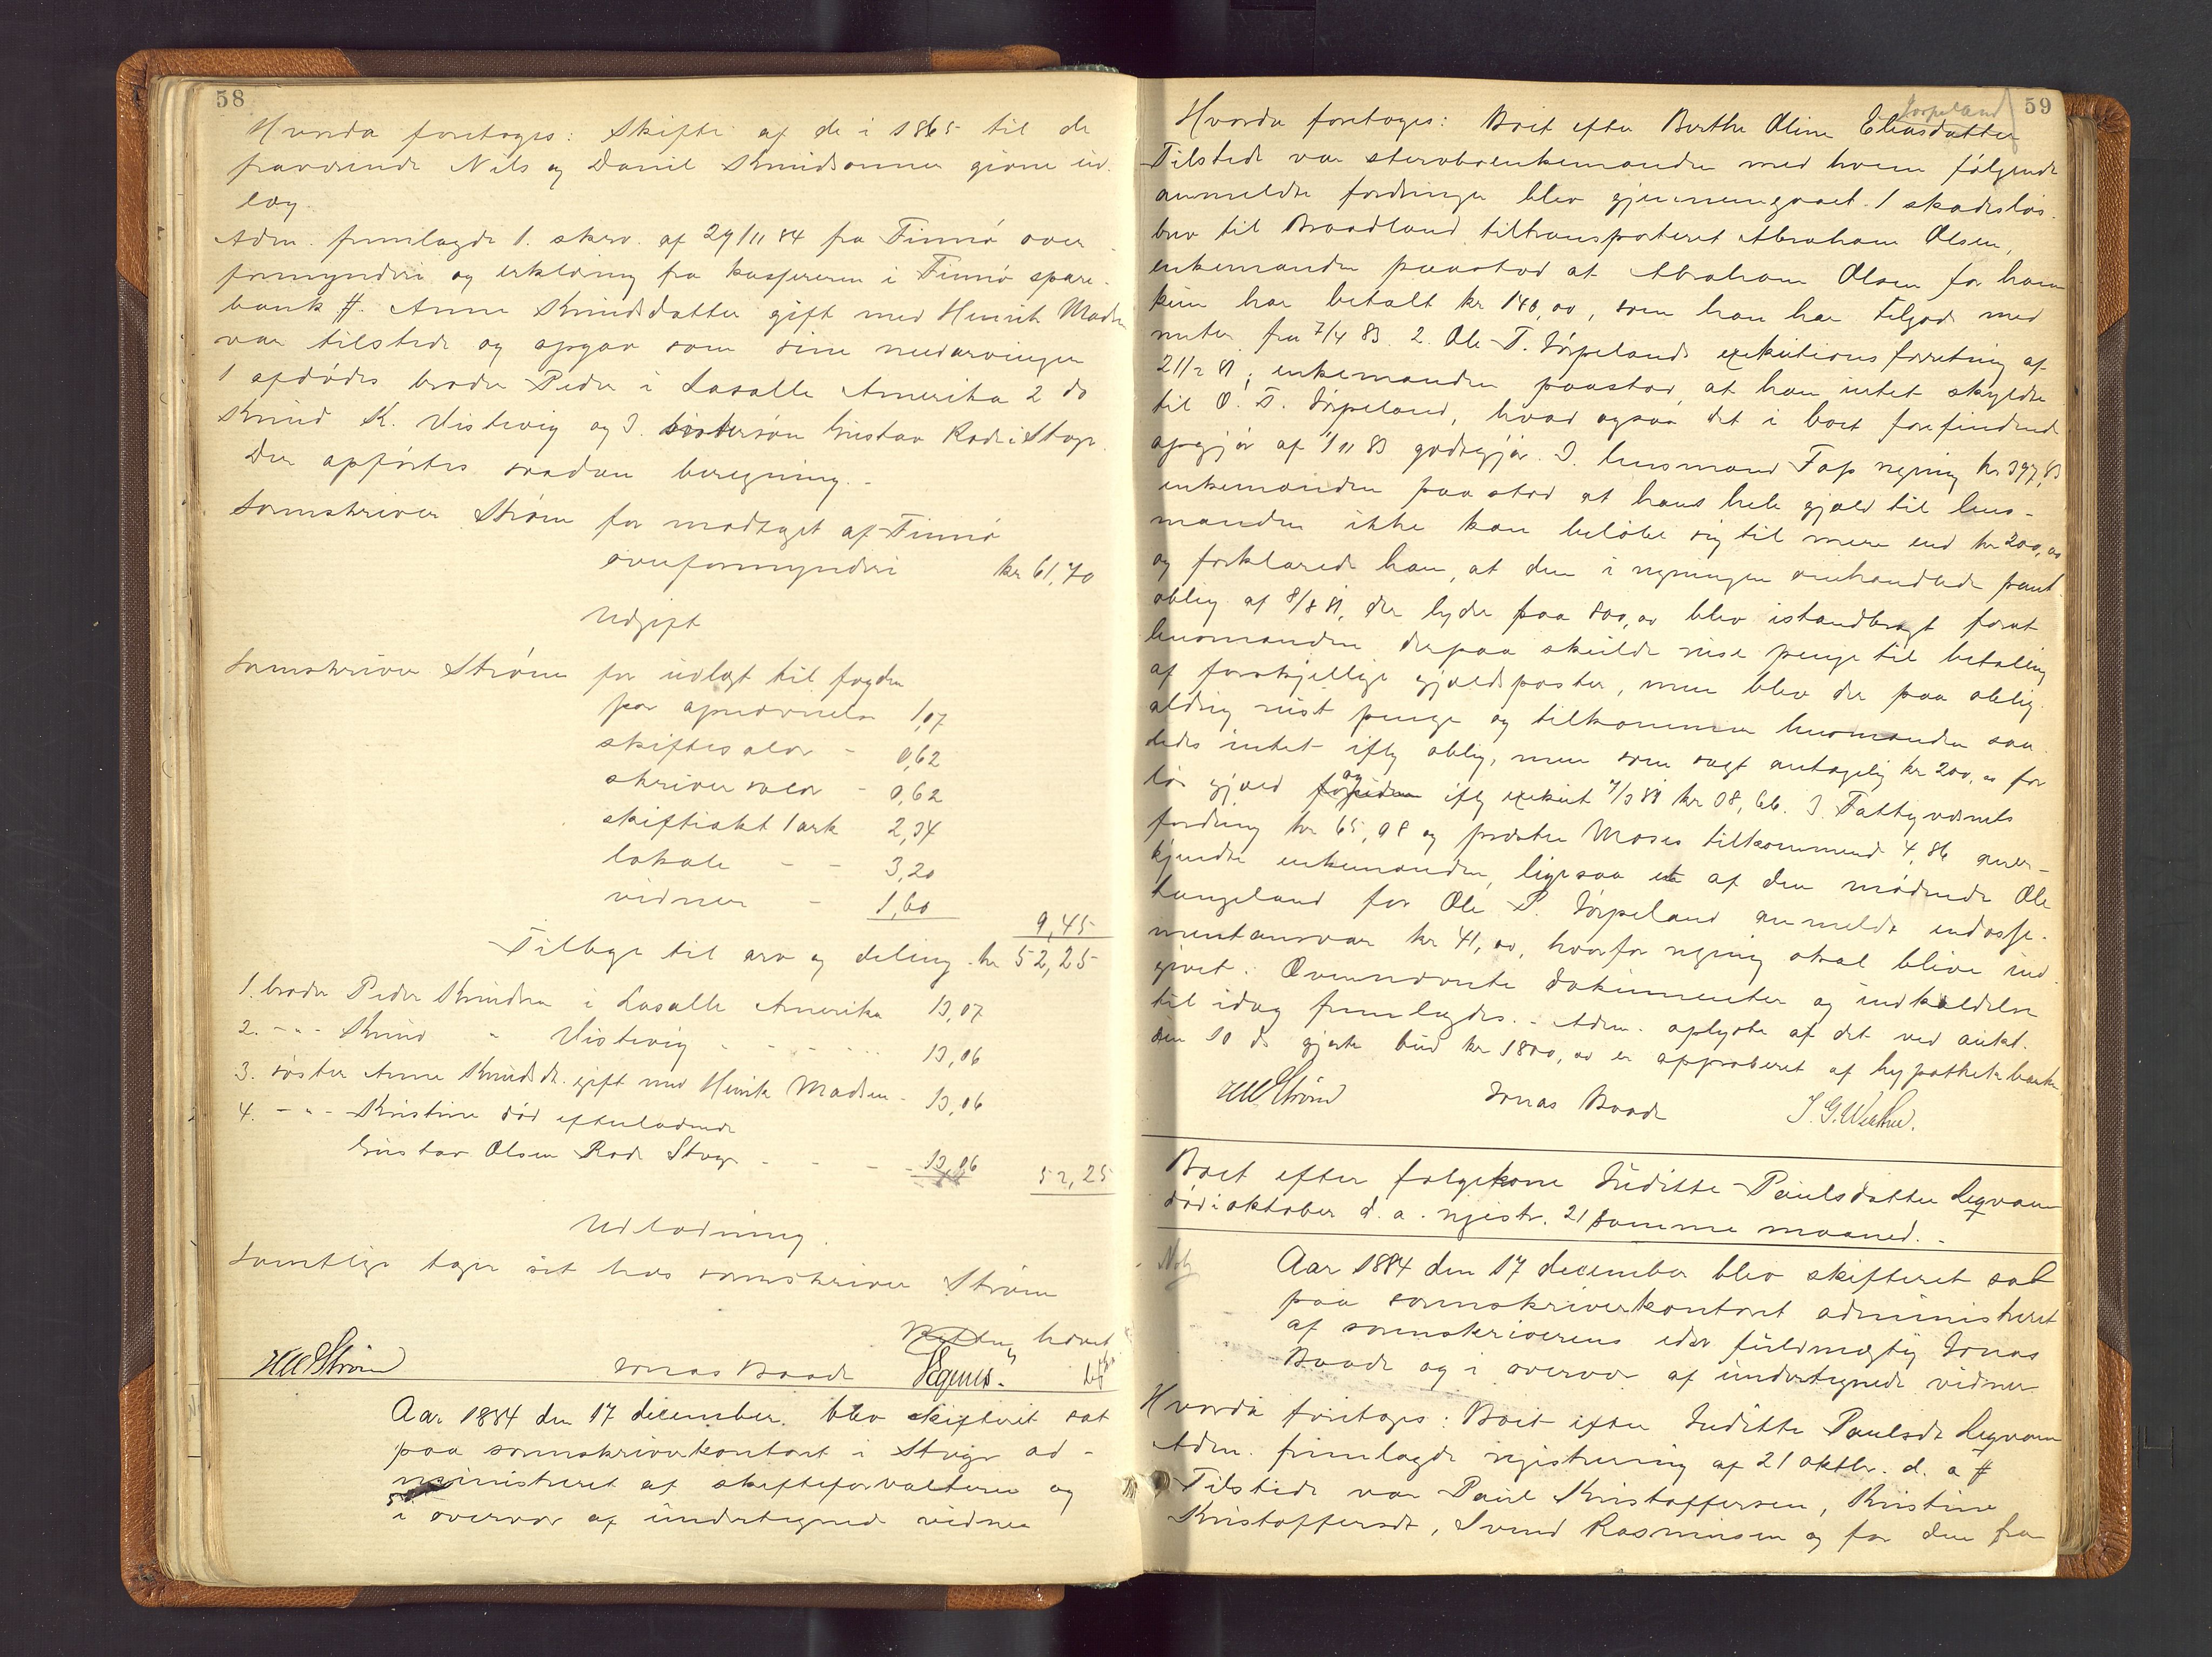 58
Hvorda foretoges: Skifte af de i 1865 til de
fraværende Nils og Daniel Knudsønner givne ud-
læg.
Adm. fremlagde 1. skriv. af 29/11 84 fra Finnø over-
formynderi og erklæring fra kassereren i Finnø spare-
bank #. Anne Knudsdatter gift med Henrik Madsen
var tilstede og opgav som sine medarvinger
1 afdødes broder Peder i Lasalle Amerika 2 do
Knud K. Vistvig og 3. søstersøn Gustav Rode i Stvgr.
Der opførtes saadan beregning.-
Sorenskriver Strøm for modtaget af Finnø
overformynderi kr 61,70
Udgift
Sorenskriver Strøm for udlagt til fogden
for opnævnelse 1,07
skiftesalær - 0,62
skriversalær - 0,62
skifteakt 1 ark 2,34
lokale - - 3,20
vidner - 1,60
9,45
Tilbage til arv og deling - kr 52,25
1. broder Peder Knudsen i Lasalle Amerika 13,07
2. - " - Knud " Vistvig - - - - 13,06
3. søster Anne Knudsdr. gift med Henrik Madsen - 13,06
4. - " - Kristine død efterladende
Gustav Olsen Rode Stvgr - - - 13,06 52,25
Udlodning.
Samtlige tager sit hos sorenskriver Strøm
Retten hævet
HWStrøm Jonas Baade
Aar 1884 den 17 december blev skifteret sat
paa sorenskriverkontoret i Stvgr ad-
ministreret af skifteforvalteren og
i overvær af undertegnede vidner
59
Jørpeland
Hvorda foretoges: Boet efter Berthe Oline Eliasdatter
Tilstede var stervboenkemanden med hvem følgende
anmeldte fordringer blev gjennemgaaet. 1 skadesløs-
brev til Braadland tiltransporteret Abraham Olsen,
enkemanden paastod at Abraham Olsen for ham
kun har betalt kr 140,00, som han har tilgode med
renter fra 7/4 83. 2. Ole T. Jørpelands exekutionsforretning af
21/2 81; enkemanden paastod, at han intet skyldte
til O. T. Jørpeland, hvad ogsaa det i boet forefindende
opgjør af 1/11 83 godtgjør. 3. lensmand Fass regning kr 397,83
enkemanden paastod at hans hele gjæld til lens-
manden ikke kan beløbe sig til mere end kr 200,00
og forklarede han, at den i regningen omhandlede pant-
oblig af 8/8 81, der lyder paa 800,00 blev istandbragt forat
lensmanden derpaa skulde reise penge til betaling
af forskjellige gjældsposter, men blev der paa oblig.
aldrig reist penge og tilkommer lensmanden saa-
ledes intet iflg oblig, men som sagt antagelig kr 200,00 for
løs gjæld og iflg exekut 7/3 81 kr 38,66. 3. Fattigvæsnets
fordring kr 65,98 og præsten Moses tilkommende 4,86 aner-
kjendte enkemanden, ligesaa et af den mødende Ole
Langeland for Ole P. Jørpeland anmeldt endosse-
mentansvar kr 41,00, hvorfor regning skal blive ind-
givet. Ovennævnte dokumenter og indkaldelse
til idag fremlagdes. - Adm. oplyste at det ved aukt.
den 10 ds gjorte bud kr 1800,00 er approberet af hypothekbanken
HWStrøm Jonas Baade
Boet efter følgekone Juditte Paulsdatter Legvam
død i oktober d. a. registr. 21 samme maaned. -
Aar 1884 den 17 december blev skifteret sat
paa sorenskriverkontoret administreret
af sorenskriverens edsv fuldmægtig Jonas
Baade og i overvær af undertegnede vidner
Hvorda foretoges: Boet efter Juditte Paulsdr Legvam
Adm. fremlagde registrering af 21 oktbr. d. a #
Tilstede var Paul Kristoffersen, Kristine
Kristoffersdr, Svend Rasmussen og for den fra